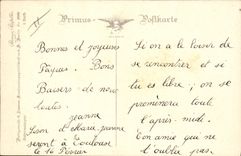 Primus - Postkarte
Bonnes et joyeuses
Pâques. Bons
Baisers de nous
toutes.
Jeanne
Jean et Marie Jeanne
seront à Toulouse
le 10
Si on a le loisir de
se rencontrer et si
tu es libre, on se
promènera toute
l'après-midi.
Ton amie qui ne
t'oublie pas